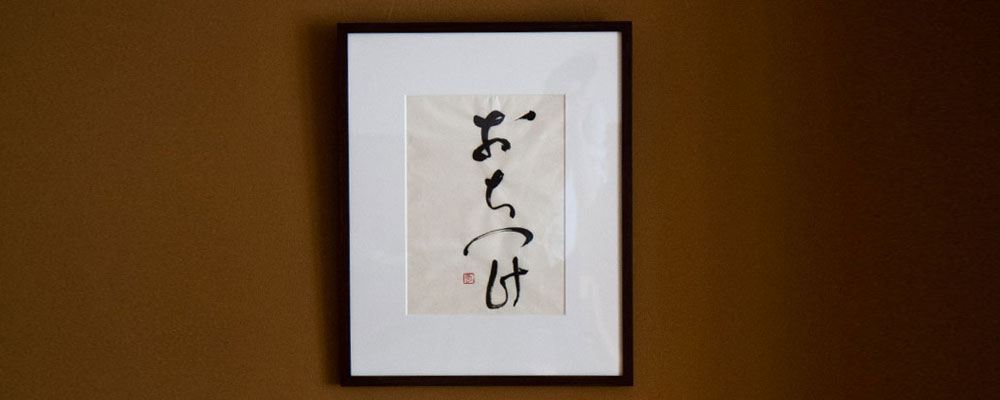 おちつけ